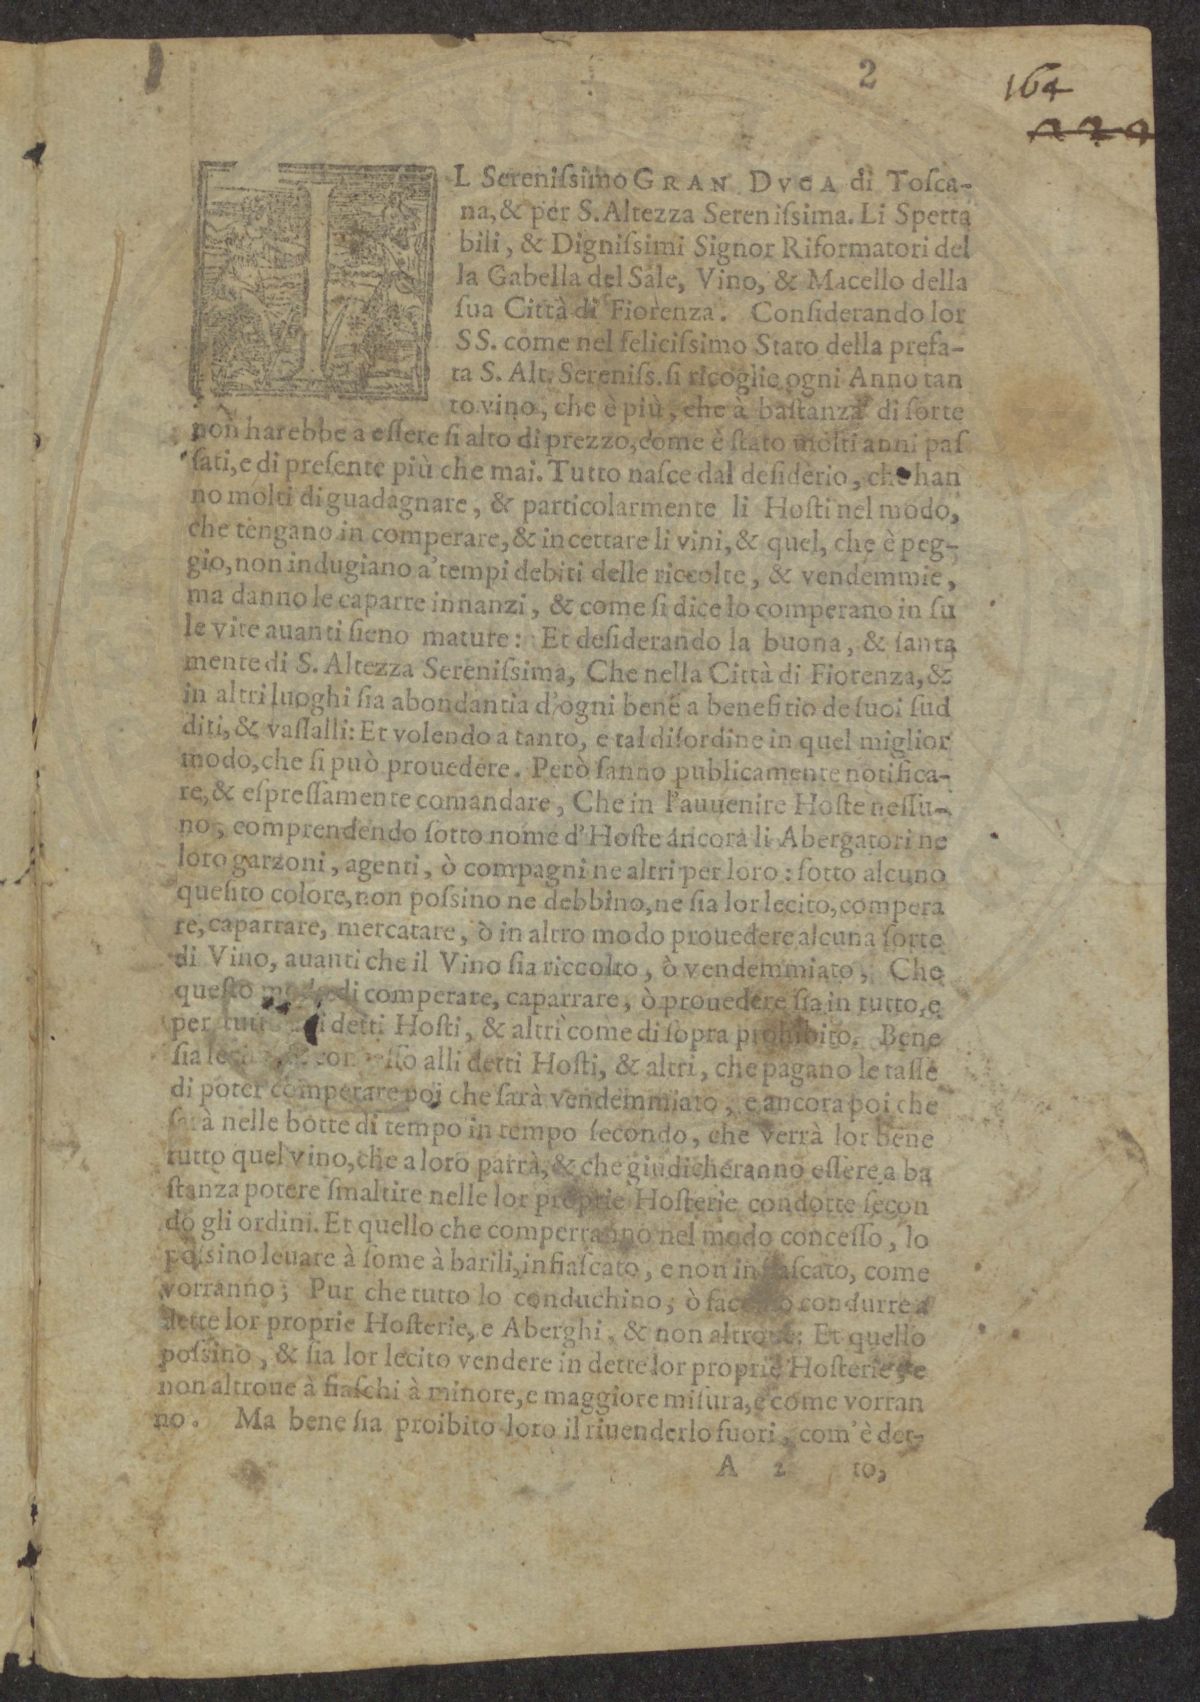 2
164
IL Serenissimo GRAN DVCA di Tosca-
na, & per S. Altezza Serenissima. Li Spetta
bili, & Dignissimi Signor Riformatori del
la Gabella del Sale, Vino, & Macello della
sua Città di Fiorenza. Considerando lor
SS. come nel felicissimo Stato della prefa-
ta S. Alt. Sereniss. si ricoglie ogni Anno tan
to vino, che è più, che à bastanza di sorte
non harebbe a essere si alto di prezzo, come è stato molti anni pas
sati, e di presente più che mai. Tutto nasce dal desiderio, che han
no molti di guadagnare, & particolarmente li Hosti nel modo,
che tengano in comperare, & incettare li vini, & quel, che è peg-
gio, non indugiano a' tempi debiti delle riccolte, & vendemmie,
ma danno le caparre innanzi, & come si dice lo comperano in su
le vite auanti sieno mature: Et desiderando la buona, & santa
mente di S. Altezza Serenissima, Che nella Città di Fiorenza, &
in altri luoghi sia abondantia d'ogni bene a benefitio de suoi sud
diti, & vassalli: Et volendo a tanto, e tal disordine in quel miglior
modo, che si può prouedere. Però fanno publicamente notifica-
re, & espressamente comandare, Che in l'auuenire Hoste nessu-
no, comprendendo sotto nome d'Hoste ancora li Abergatori ne
loro garzoni, agenti, ò compagni ne altri per loro: sotto alcuno
quesito colore, non possino ne debbino, ne sia lor lecito, compera
re, caparrare, mercatare, ò in altro modo prouedere alcuna sorte
di Vino, auanti che il Vino sia riccolto, ò vendemmiato, Che
questo di comperare, caparrare, ò prouedere sia in tutto, e
per detti Hosti, & altri come di sopra prohibito. Bene
sia alli detti Hosti, & altri, che pagano le tasse
di poter comperare poi che sarà vendemmiato, e ancora poi che
sarà nelle botte di tempo in tempo secondo, che verrà lor bene
tutto quel vino, che a loro parrà, & che giudicheranno essere a ba
stanza potere smaltire nelle lor proprie Hosterie condotte secon
do gli ordini. Et quello che comperranno nel modo concesso, lo
possino leuare à some à barili, infiascato, e non infiascato, come
vorranno; Pur che tutto lo conduchino, ò faccino condurre a
dette lor proprie Hosterie, e Aberghi, & non altroue: Et quello
possino, & sia lor lecito vendere in dette lor proprie Hosterie, e
non altroue à fiaschi à minore, e maggiore misura, e come vorran
no. Ma bene sia proibito loro il riuenderlo fuori, com'è det-
A 2 to,